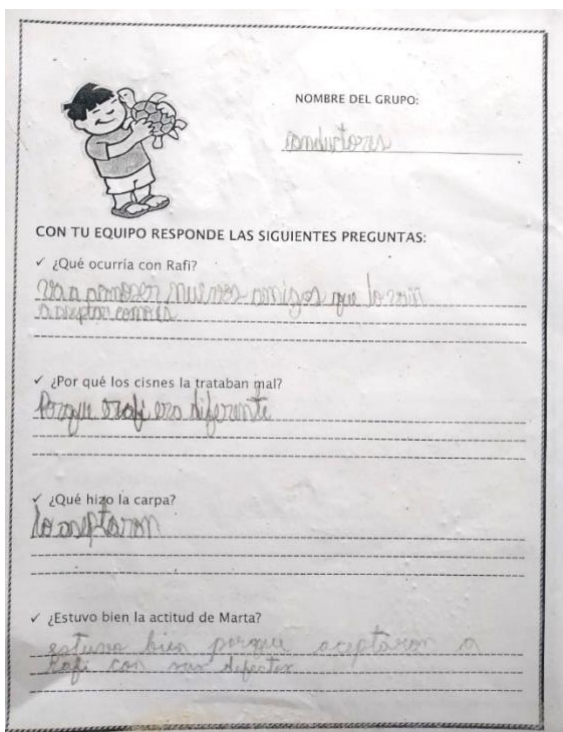 NOMBRE DEL GRUPO:
conductores
CON TU EQUIPO RESPONDE LAS SIGUIENTES PREGUNTAS:
✓ ¿Qué ocurría con Rafi?
Va a conoser nuevos amigos que lo
aseptar como es
✓ ¿Por qué los cisnes la trataban mal?
Porque rafi era diferente
✓ ¿Qué hizo la carpa?
lo aseptaron
✓ ¿Estuvo bien la actitud de Marta?
estuvo bien porque aceptaron a
Rafi con sus defectos